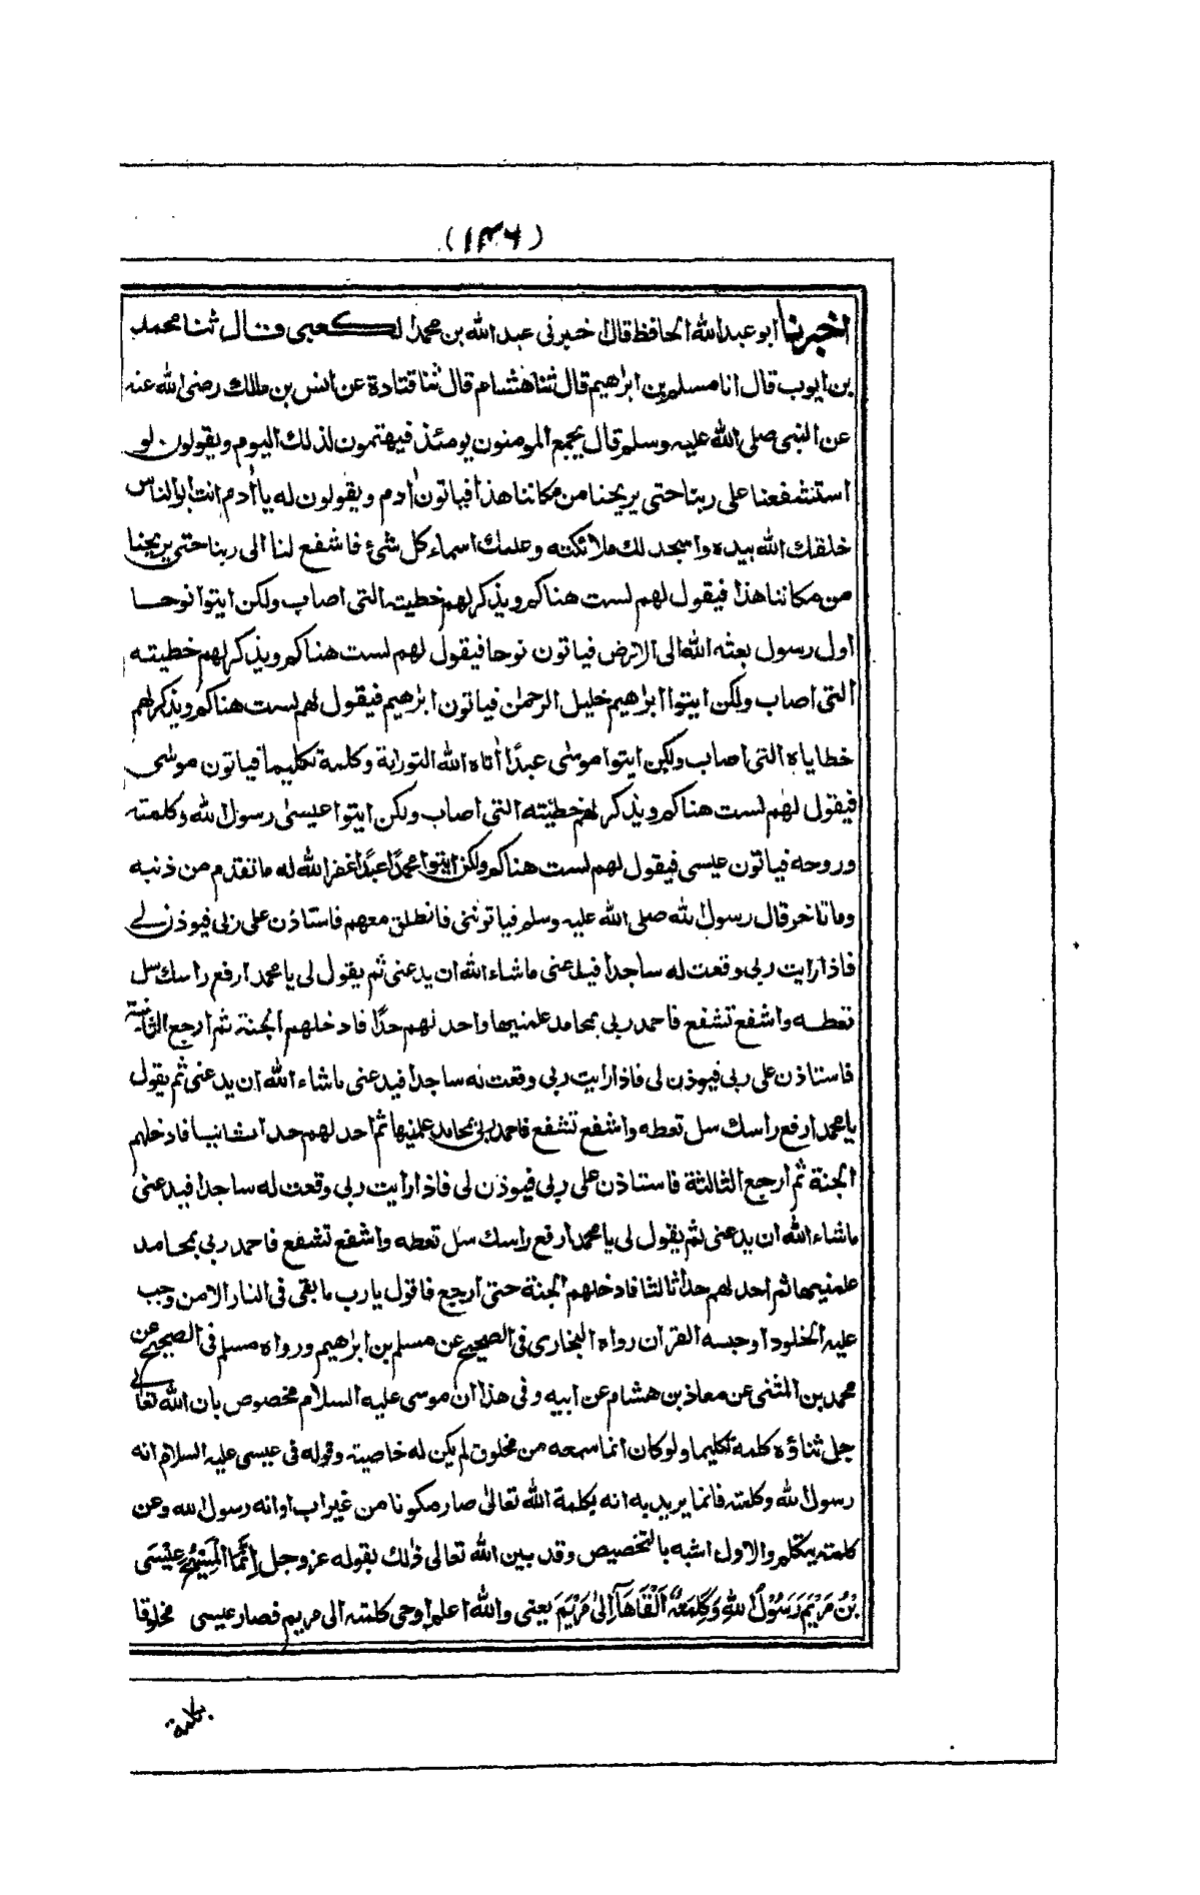 (١٣٦)
اخبرنا ابو عبد الله الحافظ قال اخبرنى عبد الله بن محمد الكعبى قال ثنا محمد
بن ايوب قال انا مسلم بن ابراهيم قال ثنا هشام قال ثنا قتادة عن انس بن مالك رضى الله عنه
عن النبى صلى الله عليه وسلم قال يجمع المومنون يومئذ فيهتمون لذلك اليوم ويقولون لو
استشفعنا على ربنا حتى يريحنا من مكاننا هذا فياتون اٰدم ويقولون له يا اٰدم انت ابو الناس
خلقك الله بيده واسجد لك ملائكته وعلمك اسماء كل شئ فاشفع لنا الى ربنا حتى يريحنا
من مكاننا هذا فيقول لهم لست هناكم ويذكر لهم خطيته التى اصاب ولكن ايتوا نوحا
اول رسول بعثه الله الى الارض فياتون نوحا فيقول لهم لست هناكم ويذكر لهم خطيته
التى اصاب ولكن ايتوا ابراهيم خليل الرحمٰن فياتون ابراهيم فيقول لهم لست هناكم ويذكر لهم
خطاياه التى اصاب ولكن ايتوا موسٰى عبدًا اٰتاه الله التوراية وكلمة تكليما فياتون موسٰى
فيقول لهم لست هناكم ويذكر لهم خطيئته التى اصاب ولكن ايتوا عيسىٰ رسول الله وكلمته
وروحه فياتون عيسى فيقول لهم لست هناكم ولكن ايتوا محمدًا عبدًا غفر الله له ما تقدم من ذنبه
وما تاخر قال رسول الله صلى الله عليه وسلم فياتوننى فانطلق معهم فاستاذن على ربى فيوذن لے
فاذا رايت ربى وقعت له ساجدا فيدعنى ما شاء الله ان يدعنى ثم يقول لى يا محمد ارفع راسك سل
تعطه واشفع تشفع فاحمد ربى بمحامد علمنيها واحد لهم حدًا فادخلهم الجنة ثم ارجع الثانية
فاستاذن على ربى فيوذن لى فاذا رايت ربى وقعت له ساجدا فيدعنى ما شاء الله ان يدعنى ثم يقول
يا محمد ارفع راسك سل تعطه واشفع تشفع فاحمد ربى بمحامد علمنيها ثم احد لهم حدا ثانيا فادخلهم
الجنة ثم ارجع الثالثة فاستاذن على ربى فيوذن لى فاذا رايت ربى وقعت له ساجدا فيدعنى
ما شاء الله ان يدعنى ثم يقول لى يا محمد ارفع راسك سل تعطه واشفع تشفع فاحمد ربى بمحامد
علمنيها ثم احد لهم حدا ثالثا فادخلهم الجنة حتى ارجع فاقول يا رب ما بقى فى النار الا من وجب
عليه الخلود او حبسه القراٰن رواه البخارى فى الصحيح عن مسلم بن ابراهيم ورواه مسلم فى الصحيح عن
محمد بن المثنى عن معاذ بن هشام عن ابيه وفى هذا ان موسى عليه السلام مخصوص بان الله تعالے
جل ثناؤه كلمه تكليما ولو كان انما سمعه من مخلوق لم يكن له خاصيته وقوله فى عيسى عليه السلام انه
رسول الله وكلمته فانما يريد به انه بكلمة الله تعالىٰ صار مكونا من غير اب او انه رسول الله وعن
كلمته يتكلم والاول اشبه بالتخصيص وقد بين الله تعالى ذٰلك بقوله عز وجل اِنَّمَا الْمَسِيْحُ عِيْسَى
بْنُ مَرْيَمَ رَسُوْلُ اللّٰهِ وَكَلِمَتُهٗ اَلْقَاهَآ اِلىٰ مَرْيَمَ يعنى والله اعلم اوحى كلمته الى مريم فصار عيسى مخلوقا
بكلمة